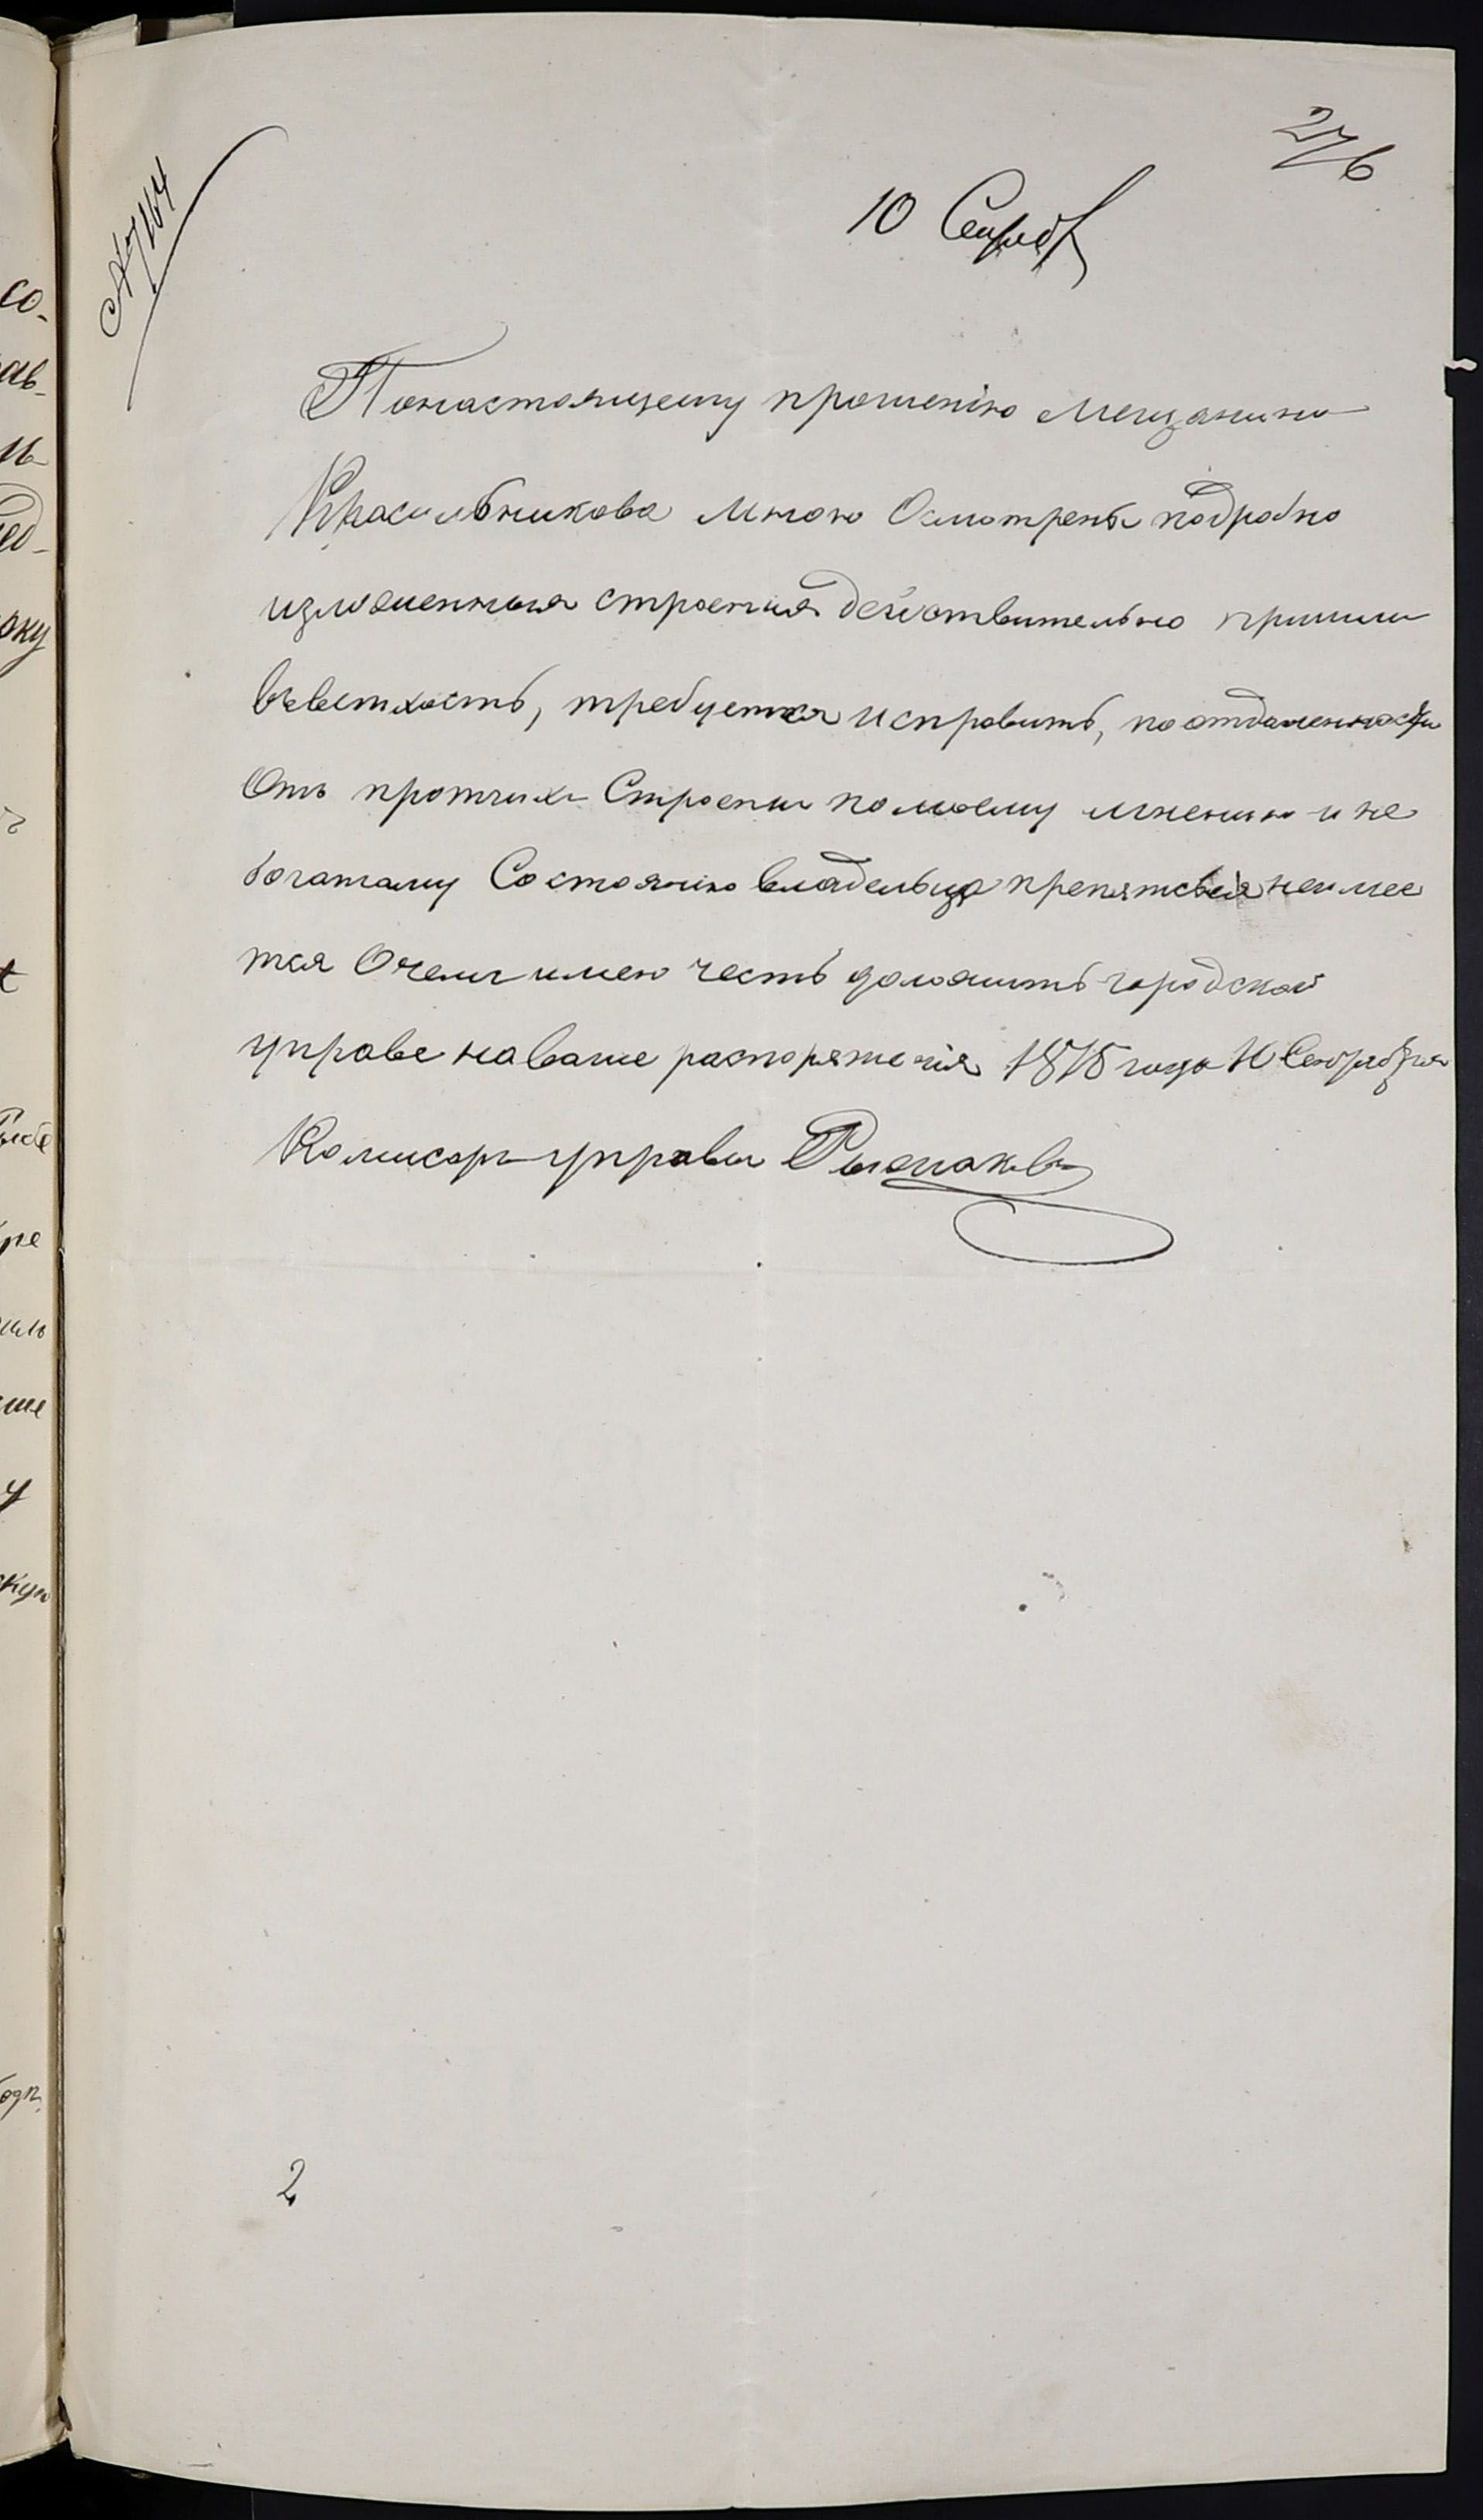 276
№ 7164
10 Сентяб
Понастоящему прошенію Мещанина
Красильникова Мною Осмотрены подробно
изложенныя строения действительно пришли
въветхость, требуется исправить, поотдаленности
Отъ протчихъ Строени помоему мнению и не
богатому Состоянию владельца препятсвия неимее
тся Очемъ имею честь доложить городской
управе наваше распоряженія 1875 года 10 Сентября
Комисаръ управы
2